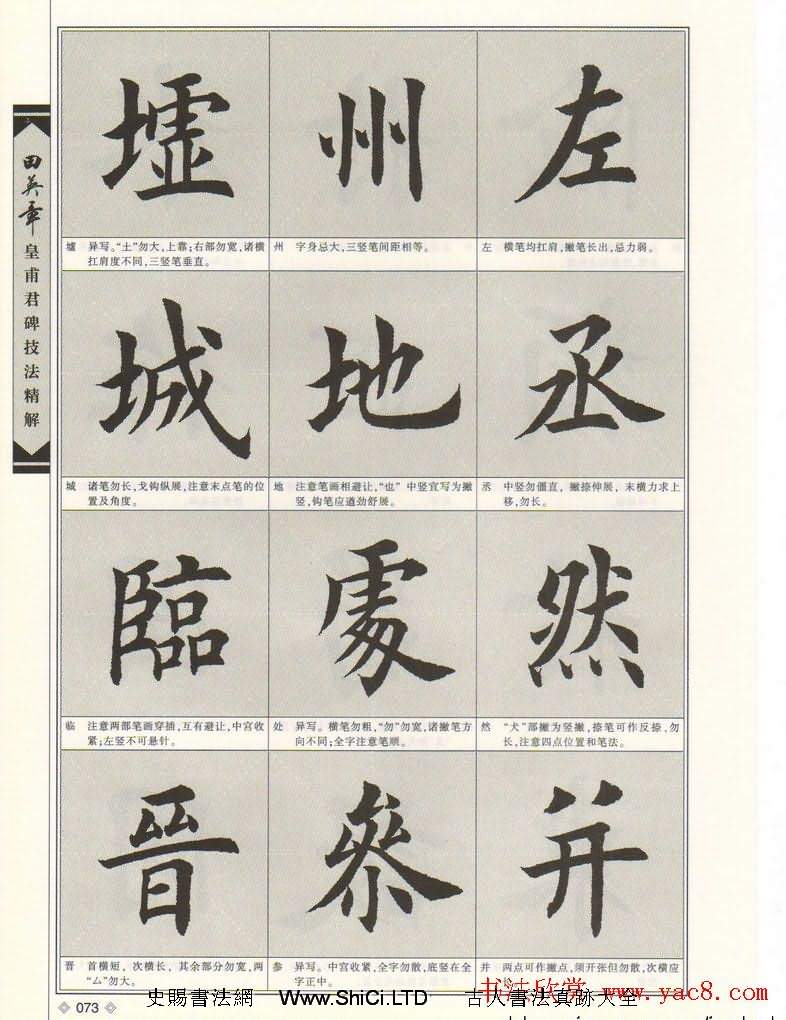 田英章
皇甫君碑技法精解
墟 州 左
墟 异写。“土”勿大,上靠;右部勿宽,诸横
扛肩度不同,三竖笔垂直。
州 字身忌大,三竖笔间距相等。
左 横笔均扛肩,撇笔长出,忌力弱。
城 地 丞
城 诸笔勿长,戈钩纵展,注意末点笔的位
置及角度。
地 注意笔画相避让,“也”中竖宜写为撇
竖,钩笔应遒劲舒展。
丞 中竖勿僵直,撇捺伸展,末横力求上
移,勿长。
臨 處 然
临 注意两部笔画穿插,互有避让,中宫收
紧;左竖不可悬针。
处 异写。横笔勿粗,“勿”勿宽,诸撇笔方
向不同;全字注意笔顺。
然 “犬”部撇为竖撇,捺笔可作反捺,勿
长,注意四点位置和笔法。
晉 參 并
晋 首横短,次横长,其余部分勿宽,两
“厶”勿大。
参 异写。中宫收紧,全字勿散,底竖在全
字正中。
并 两点可作撇点,须开张但勿散,次横应
073
史賜書法網 Www.ShiCi.LTD 古人書法真跡大全
书法欣赏 www.yac8.com